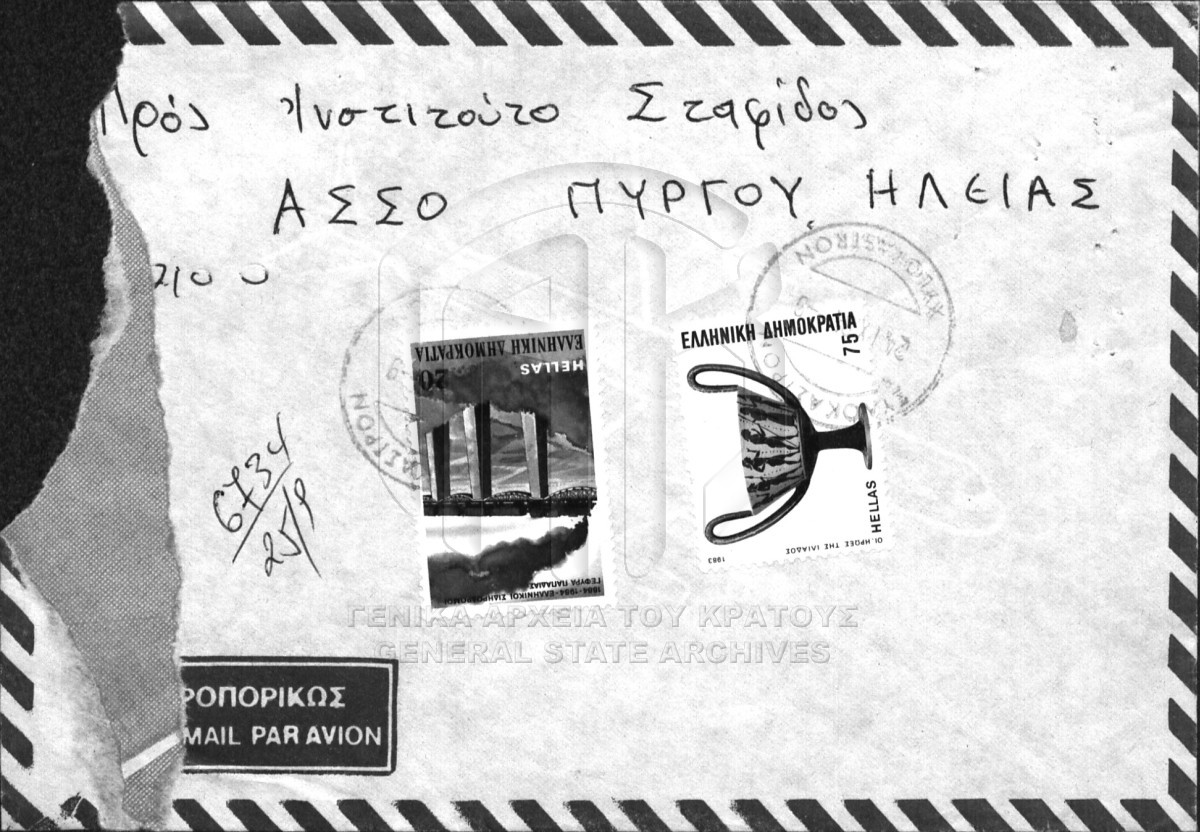 Πρός Ινστιτούτο Σταφίδος
ΑΣΣΟ ΠΥΡΓΟΥ ΗΛΕΙΑΣ
ΕΛΛΗΝΙΚΗ ΔΗΜΟΚΡΑΤΙΑ
75
HELLAS
ΟΙ ΗΡΩΕΣ ΤΗΣ ΙΛΙΑΔΟΣ
1983
ΕΛΛΗΝΙΚΗ ΔΗΜΟΚΡΑΤΙΑ
HELLAS
20
1884-1984-ΕΛΛΗΝΙΚΟΙ ΣΙΔΗΡΟΔΡΟΜΟΙ
ΓΕΦΥΡΑ ΠΑΠΑΔΙΑΣ
6734
25/9
ΓΕΝΙΚΑ ΑΡΧΕΙΑ ΤΟΥ ΚΡΑΤΟΥΣ
GENERAL STATE ARCHIVES
ΡΟΠΟΡΙΚΩΣ
MAIL PAR AVION